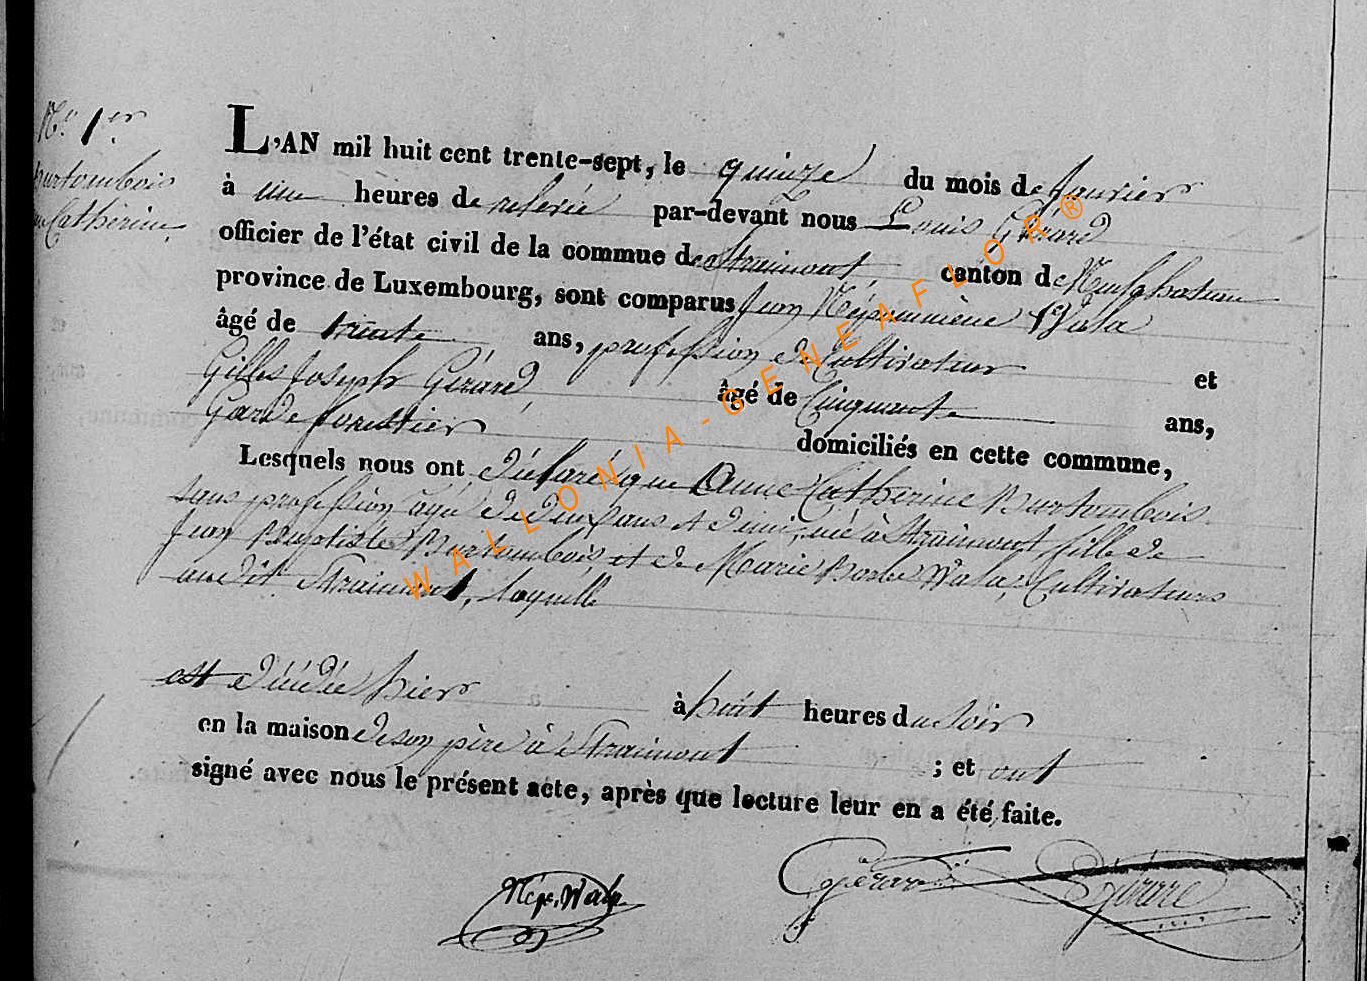 N.° 1er
Burtombois
Catherine.
L'AN mil huit cent trente-sept, le quinze du mois de Janvier
à une heures de relevée par-devant nous Louis Gérard
officier de l'état civil de la commune de Straimont canton de Neufchateau
province de Luxembourg, sont comparus Jean Népomucène Wala
âgé de trente ans, profession de Cultivateur et
Gilles Joseph Gérard, âgé de Cinquante ans,
Garde forestier domiciliés en cette commune,
Lesquels nous ont déclaré que Anne Catherine Burtombois
sans profession agée de deux ans et demi, née à Straimont, fille de
Jean Baptiste Burtombois, et de Marie Barbe Wala, Cultivateurs
audit Straimont, laquelle
est décédée hier à huit heures du soir
en la maison de son père à Straimont ; et ont
signé avec nous le présent acte, après que lecture leur en a été faite.
Népe. Wala Gérard Gérard
WALLONIA-GENEAFLOR®